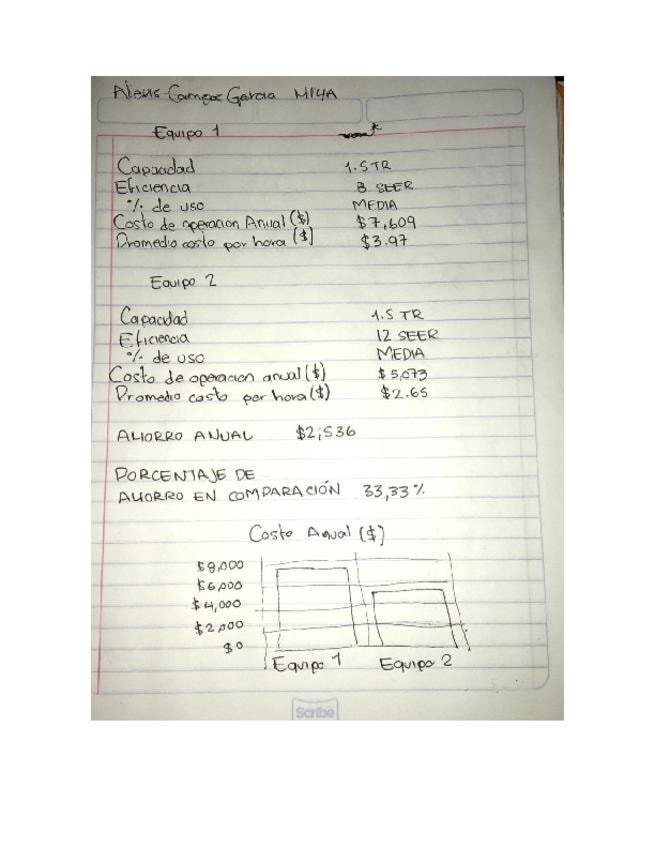 Alexis Campos Garcia MI4A
Equipo 1
Capacidad 1.5 TR
Eficiencia 8 SEER
% de uso MEDIA
Costo de operacion Anual ($) $7,609
Promedio costo por hora ($) $3.97
Equipo 2
Capacidad 1.5 TR
Eficiencia 12 SEER
% de uso MEDIA
Costo de operacion anual ($) $5,073
Promedio costo por hora ($) $2.65
AHORRO ANUAL $2,536
PORCENTAJE DE
AHORRO EN COMPARACIÓN 33,33%
Costo Anual ($)
$8,000
$6,000
$4,000
$2,000
$0
Equipo 1 Equipo 2
Scribe